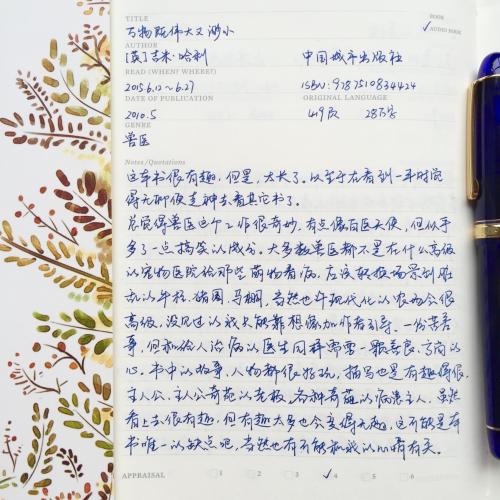 TITLE
BOOK
万物既伟大又渺小
✓ AUDIO BOOK
AUTHOR
[英]吉米·哈利
中国城市出版社
READ (WHEN? WHERE?)
2015.6.12~6.27
ISBN: 9787510834424
DATE OF PUBLICATION
ORIGINAL LANGUAGE
2010.5
419页 28万字
GENRE
兽医
Notes/Quotations
这本书很有趣,但是,太长了。以至于在看到一半时觉
得无聊便是种去看其它书了。
总觉得兽医这个工作很奇妙,有点像白衣天使,但似乎
多了一点搞笑以成分。大多数兽医都不是在什么高级
以宠物医院给那些萌物看病,应该职换场景到肮
脏以牛栏、猪圈、马棚,当然也许现代化以农场会很
高级,没见过以我只能靠想像和作者引导。一份苦差
事,但和给人治病以医生同样需要一颗善良、高尚以
心。书中以故事,人物都很好玩,描写也是有趣得很,
主人公、主人公奇葩以老板、各种奇葩以病患主人,虽然
看上去很有趣,但有趣太多也会变得无趣,这不能是本
书唯一以缺点吧,当然也有可能和我以心情有关。
APPRAISAL
1 2 3 ✓4 5 6